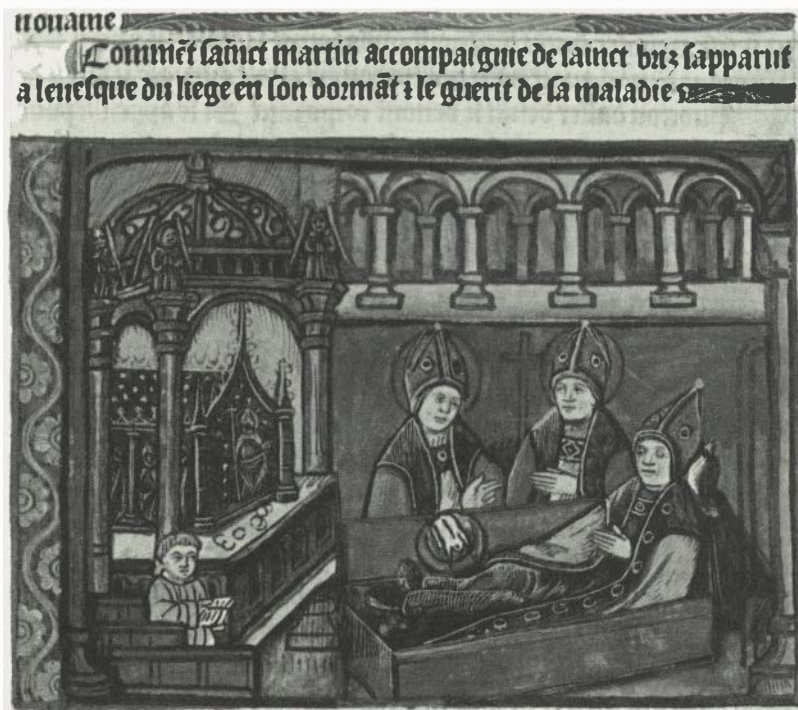 nouaine
Commēt sainct martin accompaignie de sainct briz sapparut
a leuesque du liege en son dormāt ⁊ le guerit de sa maladie